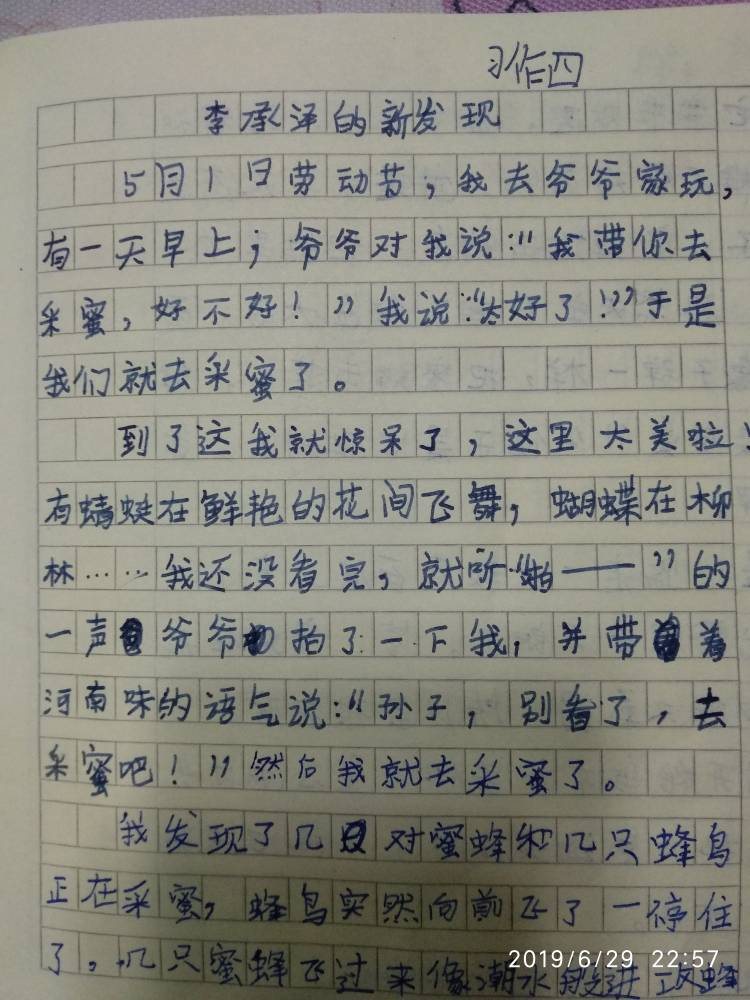 习作四
李承泽的新发现
5月1日劳动昔，我去爷爷家玩，
有一天早上；爷爷对我说：“我带你去
采蜜，好不好！”我说：“太好了！”于是
我们就去采蜜了。
到了这我就惊呆了，这里太美啦！
有蜻蜓在鲜艳的花间飞舞，蝴蝶在柳
林……我还没看完，就听“啪——”的
一声爷爷拍了一下我，并带着
河南味的语气说：“孙子，别看了，去
采蜜吧！”然后我就去采蜜了。
我发现了几对蜜蜂和几只蜂鸟
正在采蜜，蜂鸟突然向前飞了一停住
了。几只蜜蜂飞过来像潮水般进攻蜂
2019/6/29 22:57